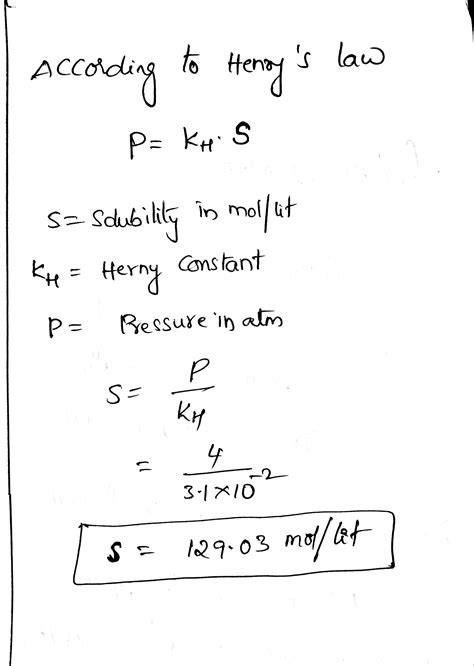 ACCording to Henry's law
P = KH · S
S = Solubility in mol/lit
KH = Herny Constant
P = Pressure in atm
S = P / KH
= 4 / 3.1 × 10^-2
S = 129.03 mol/lit